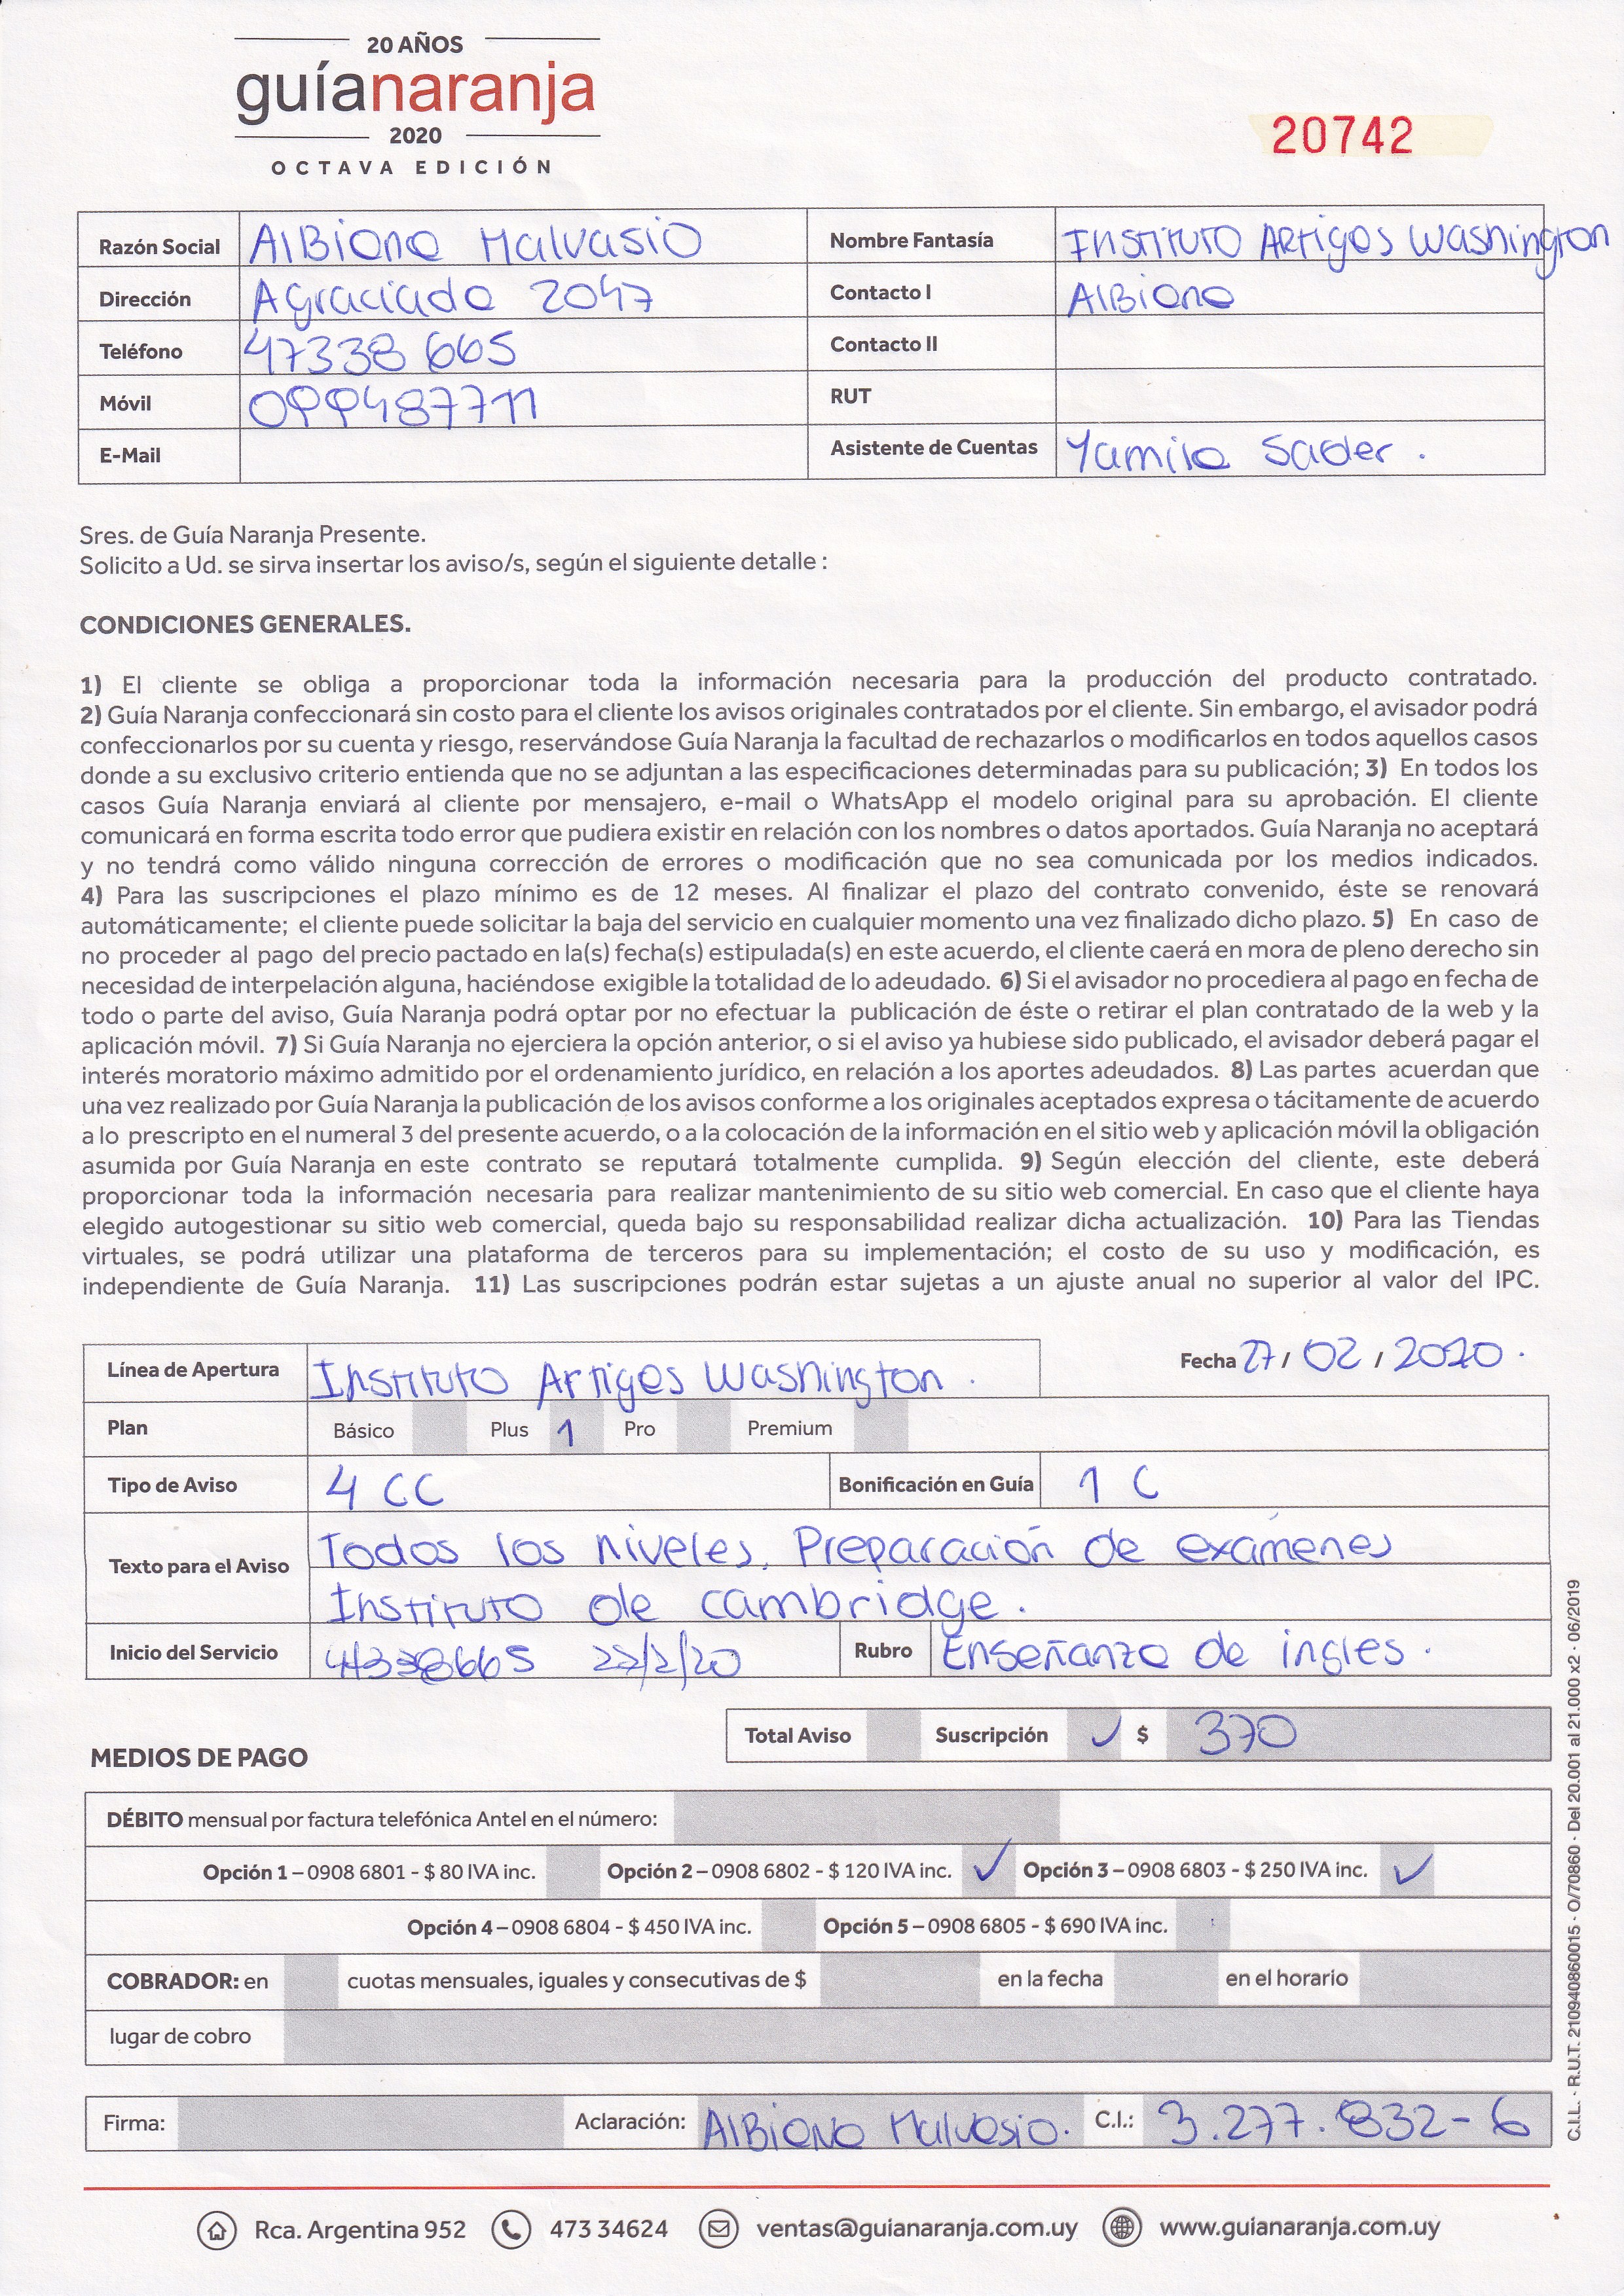 20 AÑOS
guíanaranja
2020
OCTAVA EDICIÓN
20742
Razón Social Albiana Malvasio Nombre Fantasía Instituto Artigas Washington
Dirección Agraciada 2047 Contacto I Albiana
Teléfono 47338665 Contacto II
Móvil 099487711 RUT
E-Mail Asistente de Cuentas Yamila Sader.
Sres. de Guía Naranja Presente.
Solicito a Ud. se sirva insertar los aviso/s, según el siguiente detalle :
CONDICIONES GENERALES.
1) El cliente se obliga a proporcionar toda la información necesaria para la producción del producto contratado.
2) Guía Naranja confeccionará sin costo para el cliente los avisos originales contratados por el cliente. Sin embargo, el avisador podrá
confeccionarlos por su cuenta y riesgo, reservándose Guía Naranja la facultad de rechazarlos o modificarlos en todos aquellos casos
donde a su exclusivo criterio entienda que no se adjuntan a las especificaciones determinadas para su publicación; 3) En todos los
casos Guía Naranja enviará al cliente por mensajero, e-mail o WhatsApp el modelo original para su aprobación. El cliente
comunicará en forma escrita todo error que pudiera existir en relación con los nombres o datos aportados. Guía Naranja no aceptará
y no tendrá como válido ninguna corrección de errores o modificación que no sea comunicada por los medios indicados.
4) Para las suscripciones el plazo mínimo es de 12 meses. Al finalizar el plazo del contrato convenido, éste se renovará
automáticamente; el cliente puede solicitar la baja del servicio en cualquier momento una vez finalizado dicho plazo. 5) En caso de
no proceder al pago del precio pactado en la(s) fecha(s) estipulada(s) en este acuerdo, el cliente caerá en mora de pleno derecho sin
necesidad de interpelación alguna, haciéndose exigible la totalidad de lo adeudado. 6) Si el avisador no procediera al pago en fecha de
todo o parte del aviso, Guía Naranja podrá optar por no efectuar la publicación de éste o retirar el plan contratado de la web y la
aplicación móvil. 7) Si Guía Naranja no ejerciera la opción anterior, o si el aviso ya hubiese sido publicado, el avisador deberá pagar el
interés moratorio máximo admitido por el ordenamiento jurídico, en relación a los aportes adeudados. 8) Las partes acuerdan que
una vez realizado por Guía Naranja la publicación de los avisos conforme a los originales aceptados expresa o tácitamente de acuerdo
a lo prescripto en el numeral 3 del presente acuerdo, o a la colocación de la información en el sitio web y aplicación móvil la obligación
asumida por Guía Naranja en este contrato se reputará totalmente cumplida. 9) Según elección del cliente, este deberá
proporcionar toda la información necesaria para realizar mantenimiento de su sitio web comercial. En caso que el cliente haya
elegido autogestionar su sitio web comercial, queda bajo su responsabilidad realizar dicha actualización. 10) Para las Tiendas
virtuales, se podrá utilizar una plataforma de terceros para su implementación; el costo de su uso y modificación, es
independiente de Guía Naranja. 11) Las suscripciones podrán estar sujetas a un ajuste anual no superior al valor del IPC.
Línea de Apertura Instituto Artigas Washington. Fecha 27/ 02 / 2020.
Plan Básico Plus 1 Pro Premium
Tipo de Aviso 4 CC Bonificación en Guía 1 C
Texto para el Aviso Todos los niveles. Preparación de exámenes
Instituto de cambridge.
Inicio del Servicio 47338665 27/2/20 Rubro Enseñanza de ingles.
Total Aviso Suscripción ✓ $ 370
MEDIOS DE PAGO
DÉBITO mensual por factura telefónica Antel en el número:
Opción 1 – 0908 6801 - $ 80 IVA inc. Opción 2 – 0908 6802 - $ 120 IVA inc. ✓ Opción 3 – 0908 6803 - $ 250 IVA inc. ✓
Opción 4 – 0908 6804 - $ 450 IVA inc. Opción 5 – 0908 6805 - $ 690 IVA inc.
COBRADOR: en cuotas mensuales, iguales y consecutivas de $ en la fecha en el horario
lugar de cobro
Firma: Aclaración: Albiana Malvasio. C.I.: 3.277.832-6
C.I.L. - R.U.T. 210940860015 - O/70860 - Del 20.001 al 21.000 x2 - 06/2019
Rca. Argentina 952 473 34624 ventas@guianaranja.com.uy www.guianaranja.com.uy